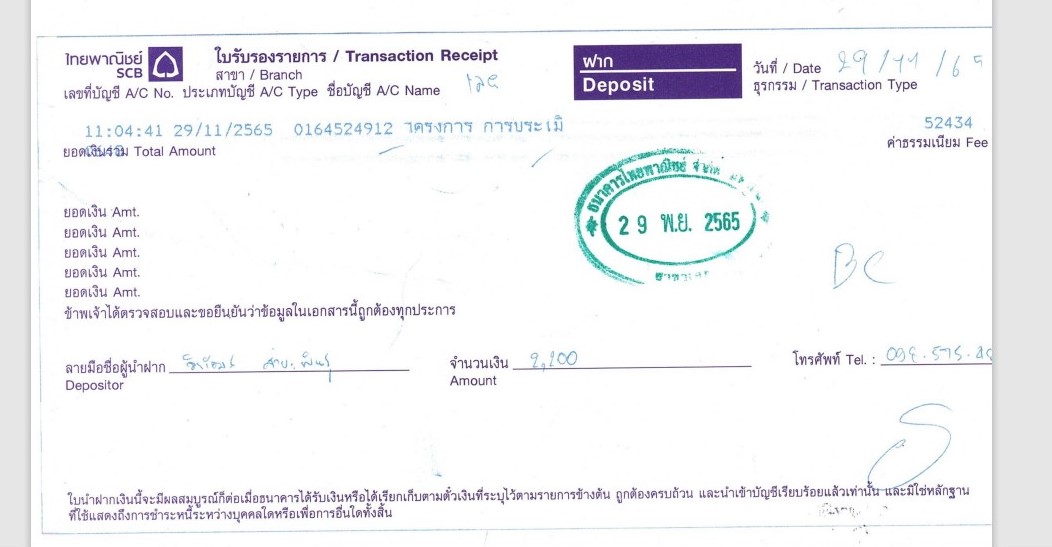 ไทยพาณิชย์
SCB
ใบรับรองรายการ / Transaction Receipt
สาขา / Branch
เลขที่บัญชี A/C No. ประเภทบัญชี A/C Type ชื่อบัญชี A/C Name
ฝาก
Deposit
วันที่ / Date 29/11/65
ธุรกรรม / Transaction Type
11:04:41 29/11/2565 0164524912 โครงการ การประเมิ
52434
ยอดเงินรวม Total Amount
ค่าธรรมเนียม Fee
ธนาคารไทยพาณิชย์ จำกัด
29 พ.ย. 2565
ยอดเงิน Amt.
ยอดเงิน Amt.
ยอดเงิน Amt.
ยอดเงิน Amt.
ยอดเงิน Amt.
BC
ข้าพเจ้าได้ตรวจสอบและขอยืนยันว่าข้อมูลในเอกสารนี้ถูกต้องทุกประการ
ลายมือชื่อผู้นำฝาก
Depositor
จำนวนเงิน 2,200
Amount
โทรศัพท์ Tel. :
ใบนำฝากเงินนี้จะมีผลสมบูรณ์ก็ต่อเมื่อธนาคารได้รับเงินหรือได้เรียกเก็บตามตั๋วเงินที่ระบุไว้ตามรายการข้างต้น ถูกต้องครบถ้วน และนำเข้าบัญชีเรียบร้อยแล้วเท่านั้น และมิใช่หลักฐาน
ที่ใช้แสดงถึงการชำระหนี้ระหว่างบุคคลใดหรือเพื่อการอื่นใดทั้งสิ้น